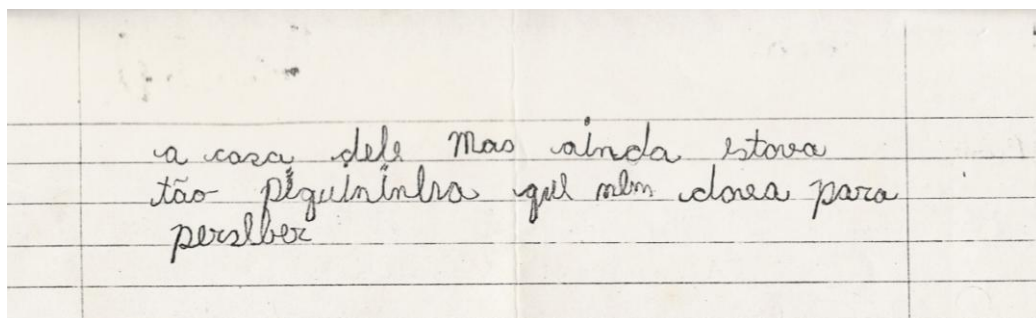 a casa dele mas ainda estava
tão piquininha que nem dava para
perseber